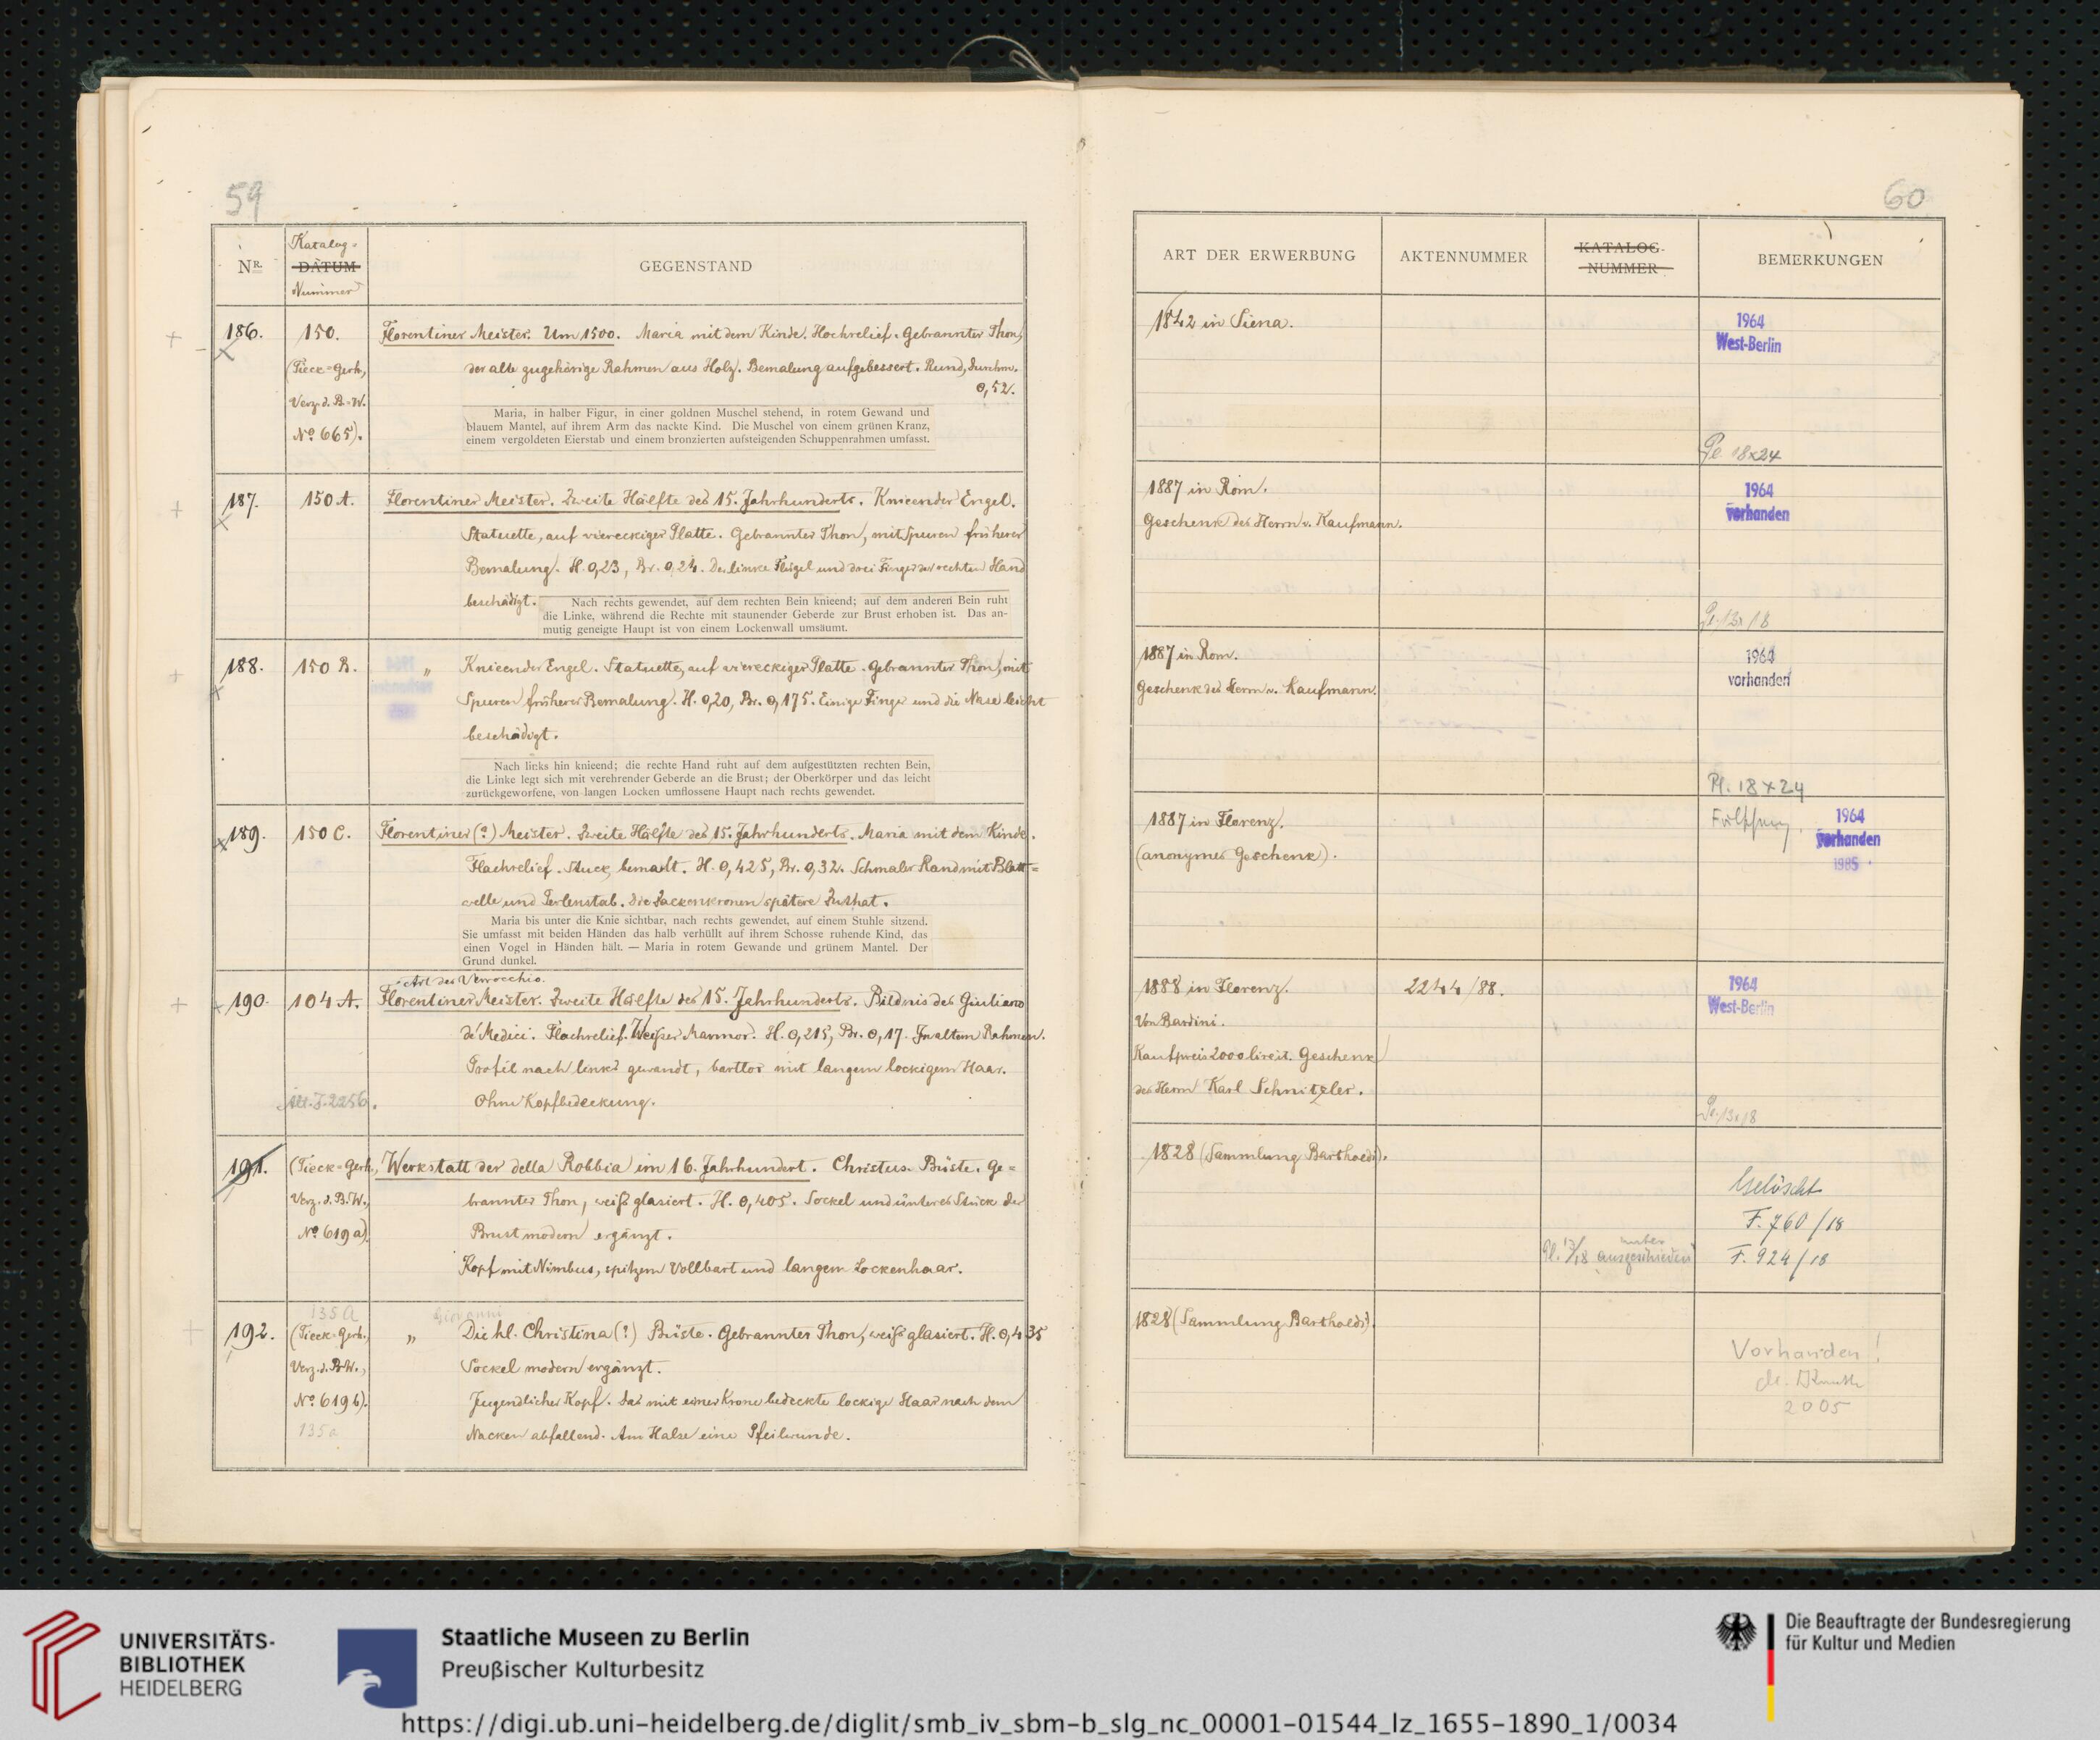 59
NR.
Katalog-
DATUM
Nummer
GEGENSTAND
186.
150.
(Tieck=Gerh.,
Verz. d. B.=W.
No 665).
Florentiner Meister. Um 1500. Maria mit dem Kinde. Hochrelief. Gebrannter Thon,
der alte zugehörige Rahmen aus Holz. Bemalung aufgebessert. Rund, Durchm.
0,52.
Maria, in halber Figur, in einer goldnen Muschel stehend, in rotem Gewand und
blauem Mantel, auf ihrem Arm das nackte Kind. Die Muschel von einem grünen Kranz,
einem vergoldeten Eierstab und einem bronzierten aufsteigenden Schuppenrahmen umfasst.
187.
150 A.
Florentiner Meister. Zweite Hälfte des 15. Jahrhunderts. Knieender Engel.
Statuette, auf viereckiger Platte. Gebrannter Thon, mit Spuren früherer
Bemalung. H. 0,23, Br. 0,24. Der linke Flügel und drei Finger der rechten Hand
beschädigt.
Nach rechts gewendet, auf dem rechten Bein knieend; auf dem anderen Bein ruht
die Linke, während die Rechte mit staunender Geberde zur Brust erhoben ist. Das an-
mutig geneigte Haupt ist von einem Lockenwall umsäumt.
188.
150 B.
„ Knieender Engel. Statuette, auf viereckiger Platte. Gebrannter Thon, mit
Spuren früherer Bemalung. H. 0,20, Br. 0,175. Einige Finger und die Nase leicht
beschädigt.
Nach links hin knieend; die rechte Hand ruht auf dem aufgestützten rechten Bein,
die Linke legt sich mit verehrender Geberde an die Brust; der Oberkörper und das leicht
zurückgeworfene, von langen Locken umflossene Haupt nach rechts gewendet.
189.
150 C.
Florentiner (?) Meister. Zweite Hälfte des 15. Jahrhunderts. Maria mit dem Kinde.
Flachrelief. Stuck, bemalt. H. 0,425, Br. 0,32. Schmaler Rand mit Blatt=
welle und Perlenstab. Die Zackenkronen spätere Zuthat.
Maria bis unter die Knie sichtbar, nach rechts gewendet, auf einem Stuhle sitzend.
Sie umfasst mit beiden Händen das halb verhüllt auf ihrem Schosse ruhende Kind, das
einen Vogel in Händen hält. — Maria in rotem Gewande und grünem Mantel. Der
Grund dunkel.
190.
104 A.
Alt. J. 2256.
Art des Verrocchio.
Florentiner Meister. Zweite Hälfte des 15. Jahrhunderts. Bildnis des Giuliano
de' Medici. Flachrelief. Weißer Marmor. H. 0,215, Br. 0,17. In altem Rahmen.
Profil nach links gewandt, bartlos mit langem lockigem Haar.
Ohne Kopfbedeckung.
191.
(Tieck=Gerh.,
Verz. d. B.W.,
No 619 a).
Werkstatt der della Robbia im 16. Jahrhundert. Christus. Büste. Ge=
brannter Thon, weiß glasiert. H. 0,405. Sockel und unteres Stück der
Brust modern ergänzt.
Kopf mit Nimbus, spitzem Vollbart und langem Lockenhaar.
192.
135 A
(Tieck=Gerh.,
Verz. d. B.W.,
No 619 b).
135a
Giovanni
„ Die hl. Christina (?) Büste. Gebrannter Thon, weiß glasiert. H. 0,435
Sockel modern ergänzt.
Jugendlicher Kopf. Das mit einer Krone bedeckte lockige Haar nach dem
Nacken abfallend. Am Halse eine Pfeilwunde.
60
ART DER ERWERBUNG
AKTENNUMMER
KATALOG-
NUMMER
BEMERKUNGEN
1842 in Siena.
1964
West-Berlin
Pl. 18x24
1887 in Rom.
Geschenk des Herrn v. Kaufmann.
1964
vorhanden
Pl. 13x18
1887 in Rom.
Geschenk des Herrn v. Kaufmann.
1964
vorhanden
Pl. 18x24
1887 in Florenz.
(anonymes Geschenk).
Fälschung.
1964
vorhanden
1985
1888 in Florenz.
Von Bardini.
Kaufpreis 2000 lire it. Geschenk
des Herrn Karl Schnitzler.
2244/88.
1964
West-Berlin
Pl. 13x18
1828 (Sammlung Bartholdi).
Pl. 13/18 unter ausgeschieden
Gelöscht
F. 760/18
F. 924/18
1828 (Sammlung Bartholdi).
Vorhanden!
2005
UNIVERSITÄTS-
BIBLIOTHEK
HEIDELBERG
Staatliche Museen zu Berlin
Preußischer Kulturbesitz
Die Beauftragte der Bundesregierung
für Kultur und Medien
https://digi.ub.uni-heidelberg.de/diglit/smb_iv_sbm-b_slg_nc_00001-01544_lz_1655-1890_1/0034